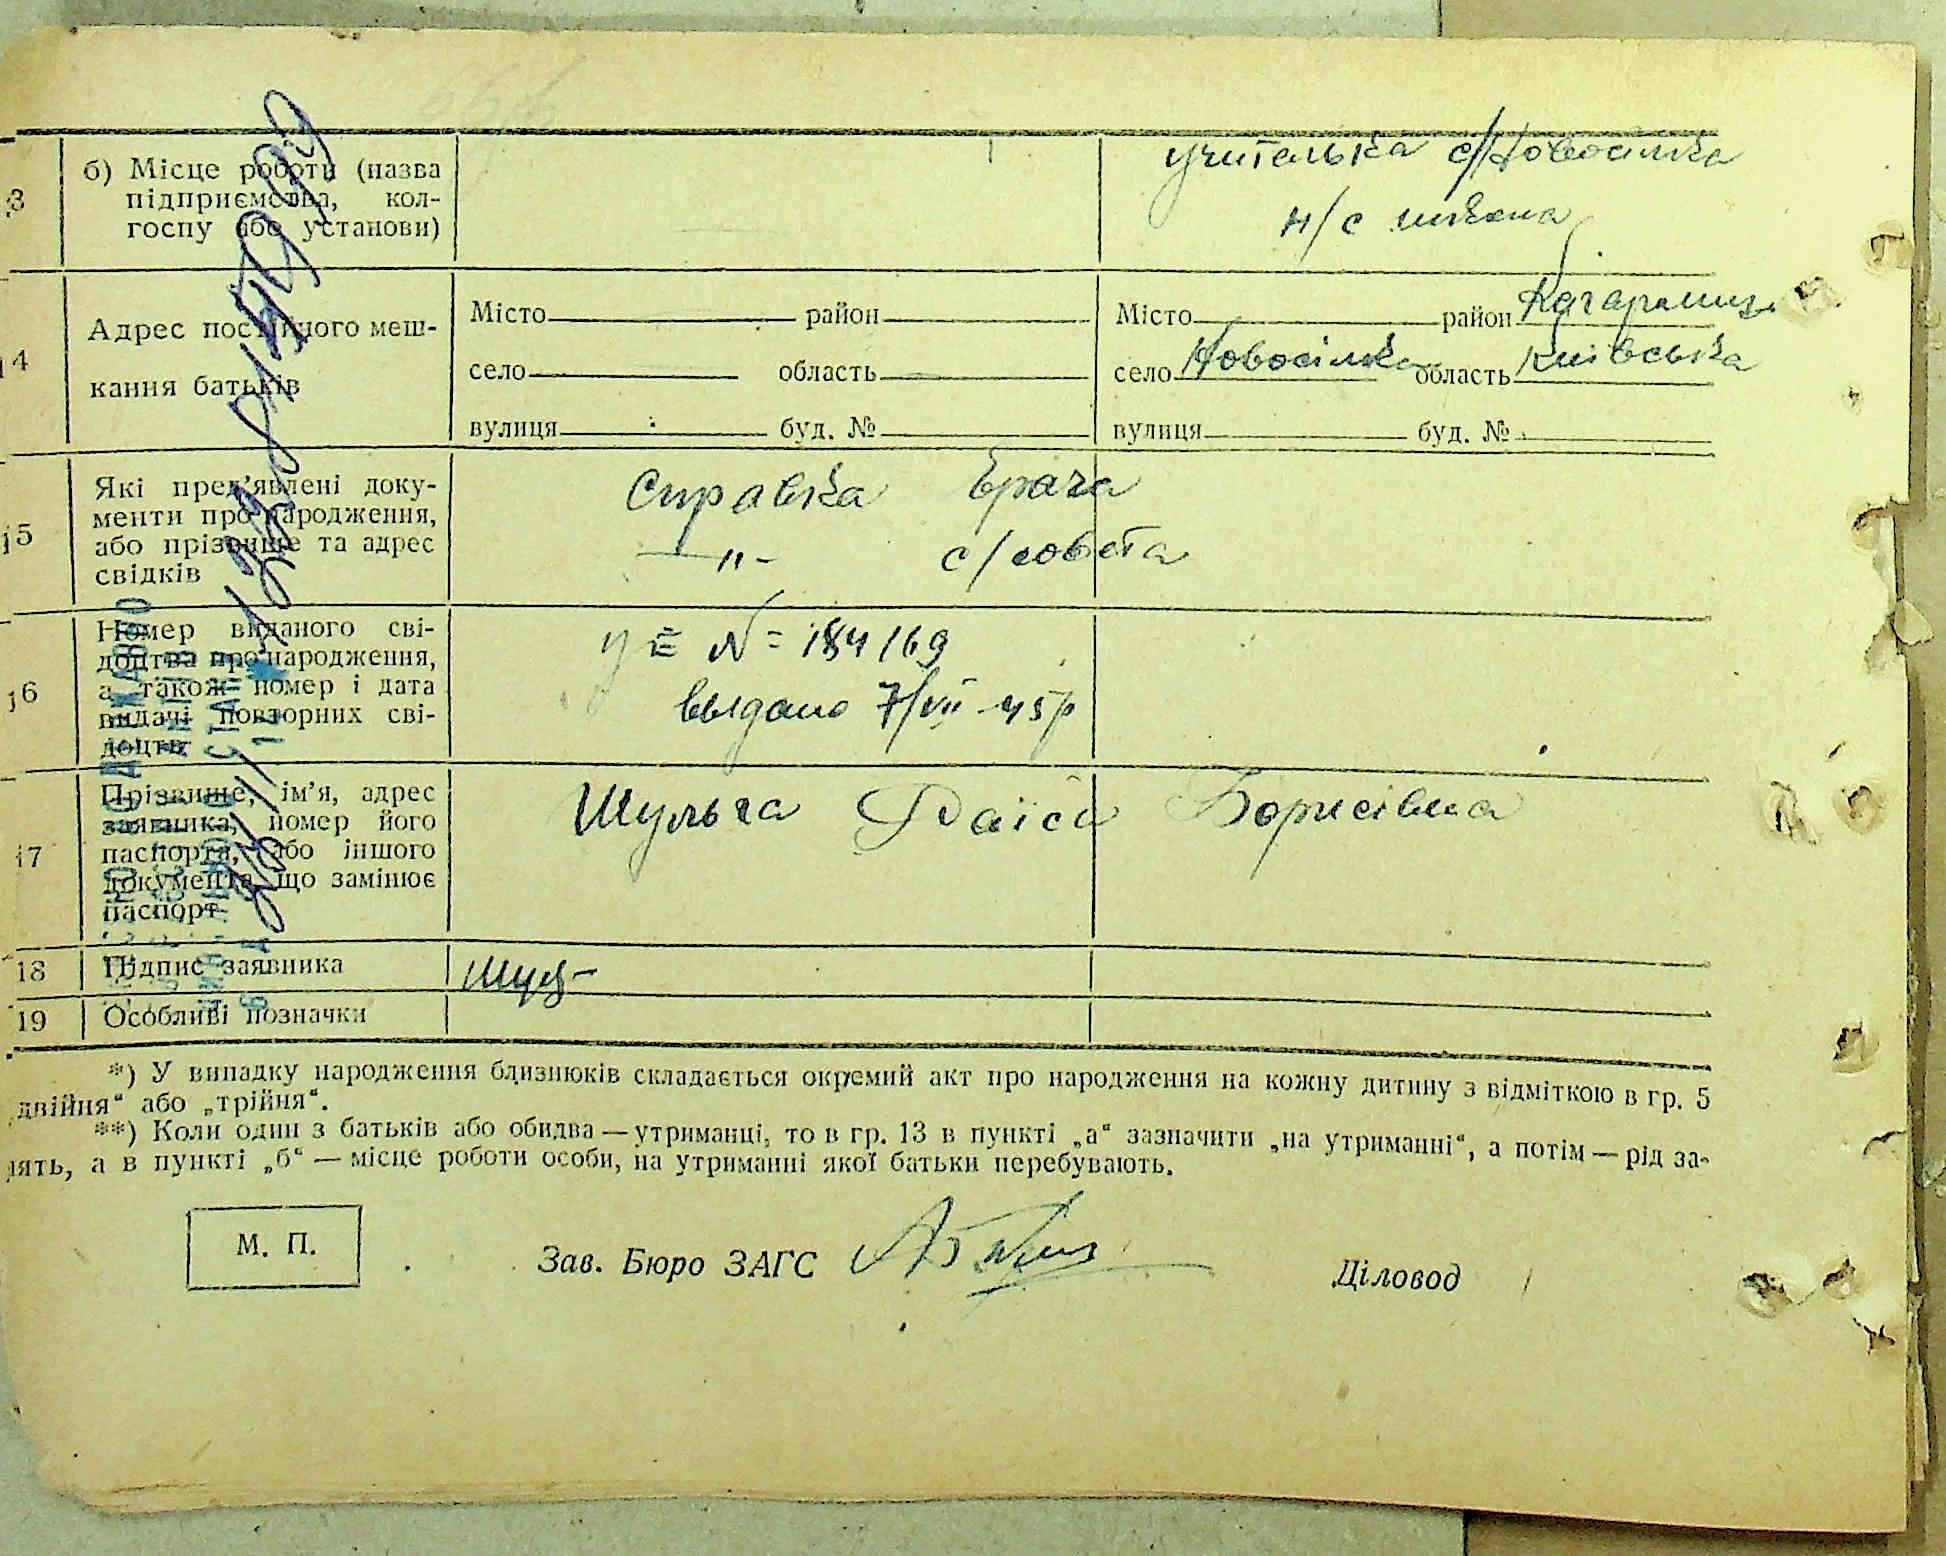 б) Місце роботи (назва
підприємства, кол-
госпу або установи)
учителька с/Новосілка
н/с школа
Адрес постійного меш-
кання батьків
Місто район
село область
вулиця буд. №
Місто район
село Новосілка область Київська
вулиця буд. №
15
Які пред'явлені доку-
менти про народження,
або прізвище та адрес
свідків
Справка врача
—"- с/совета
16
Номер виданого сві-
доцтва про народження,
а також номер і дата
видачі повторних сві-
доцтв
N= 184169
выдано 7/VII-45р
17
Прізвище, ім'я, адрес
заявника, номер його
паспорта, або іншого
документа, що замінює
паспорт
Шульга Раїса Борисівна
18 Підпис заявника
19 Особливі позначки
*) У випадку народження близнюків складається окремий акт про народження на кожну дитину з відміткою в гр. 5
„двійня“ або „трійня“.
**) Коли один з батьків або обидва — утриманці, то в гр. 13 в пункті „а“ зазначити „на утриманні“, а потім — рід за-
нять, а в пункті „б“ — місце роботи особи, на утриманні якої батьки перебувають.
М. П.
Зав. Бюро ЗАГС
Діловод